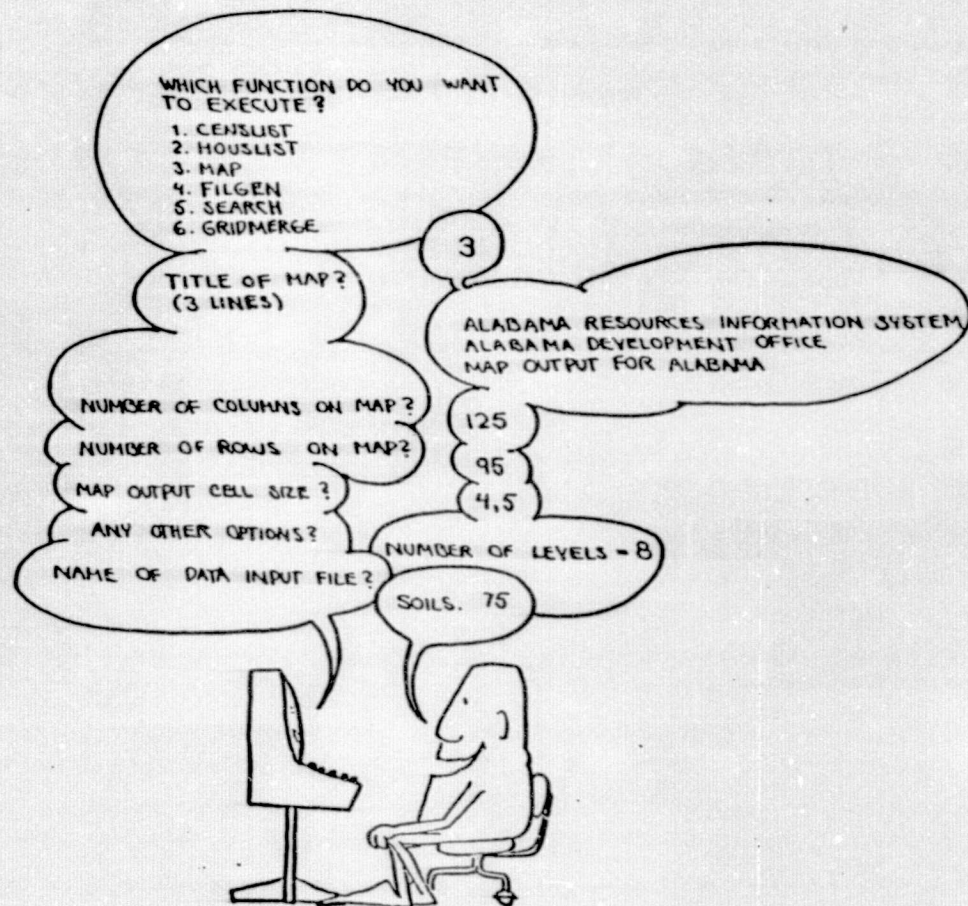 WHICH FUNCTION DO YOU WANT
TO EXECUTE?
1. CENSLIST
2. HOUSLIST
3. MAP
4. FILGEN
5. SEARCH
6. GRIDMERGE
3
TITLE OF MAP?
(3 LINES)
ALABAMA RESOURCES INFORMATION SYSTEM
ALABAMA DEVELOPMENT OFFICE
MAP OUTPUT FOR ALABAMA
NUMBER OF COLUMNS ON MAP?
125
NUMBER OF ROWS ON MAP?
95
MAP OUTPUT CELL SIZE?
4,5
ANY OTHER OPTIONS?
NUMBER OF LEVELS = 8
NAME OF DATA INPUT FILE?
SOILS. 75